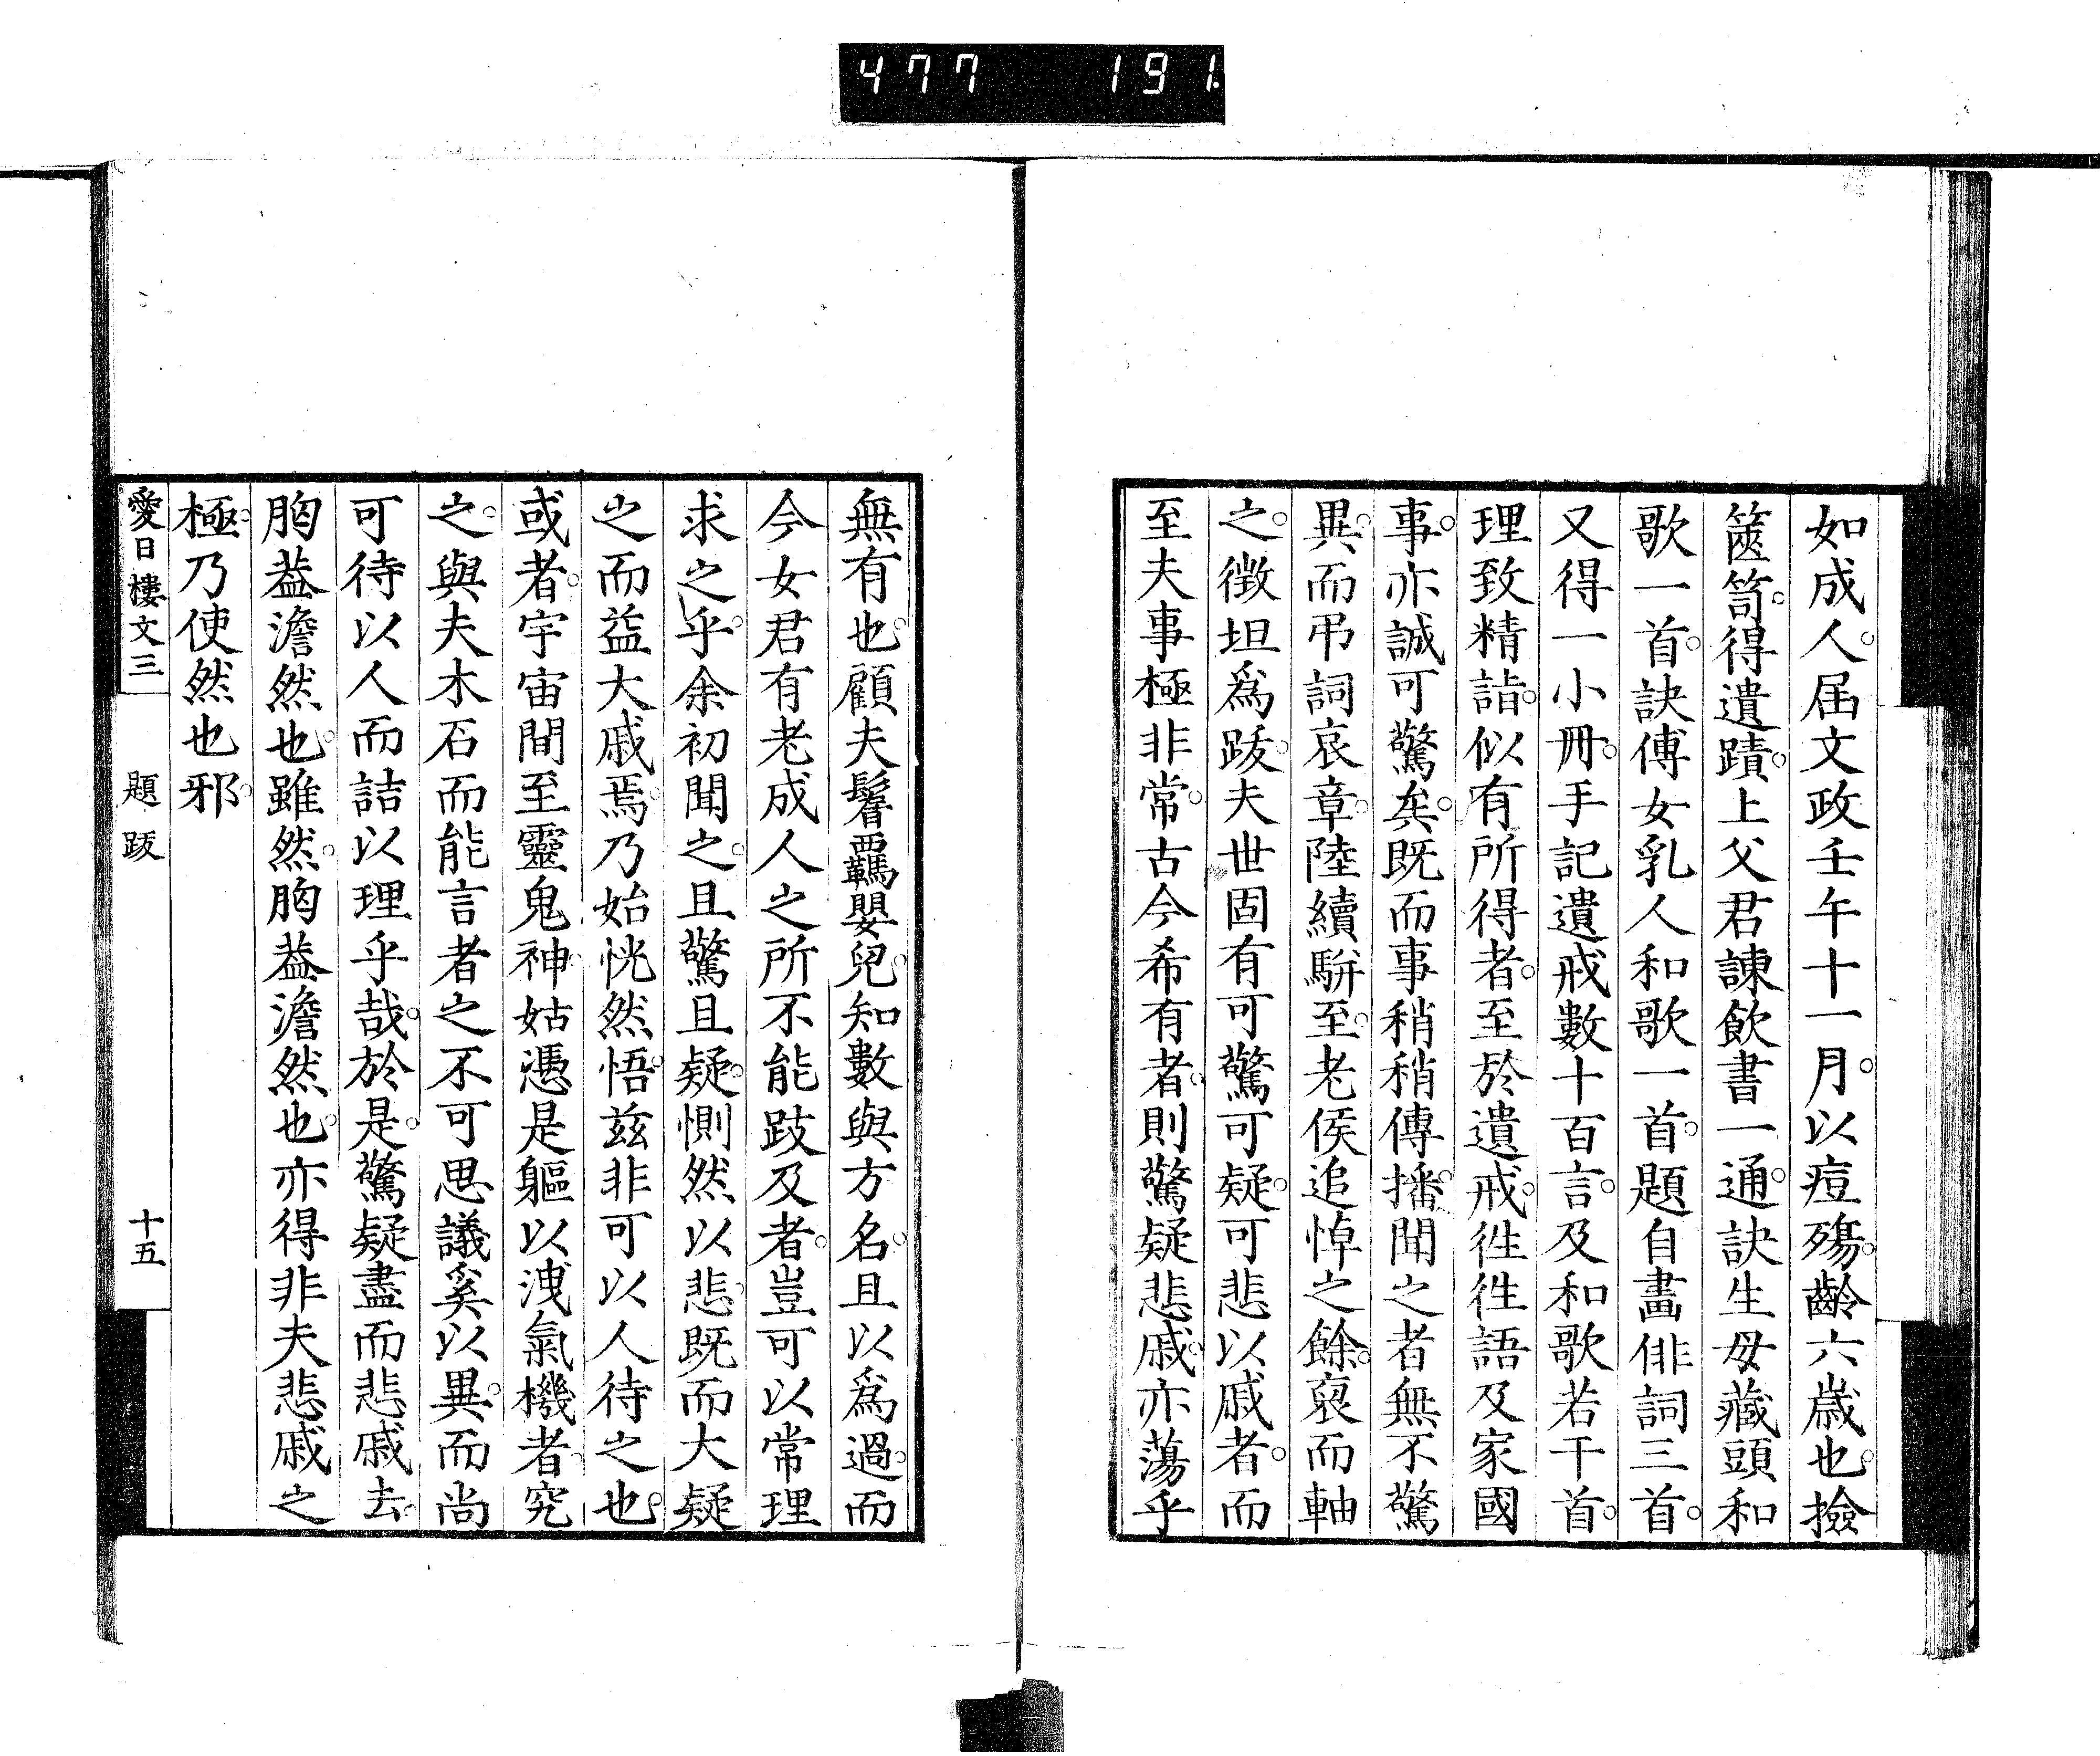 477 191
如成人。届文政壬午十一月。以痘殤。齡六歳也。撿
篋笥。得遺蹟。上父君諫飲書一通。訣生母藏頭和
歌一首。訣傅女乳人和歌一首。題自畵俳詞三首。
又得一小冊。手記遺戒數十百言。及和歌若干首。
理致精詣。似有所得者。至於遺戒。徃徃語及家國
事。亦誠可驚矣。既而事稍稍傳播。聞之者無不驚
異。而弔詞哀章。陸續駢至。老侯追悼之餘。裒而軸
之。徴坦爲跋。夫世固有可驚可疑。可悲以戚者。而
至夫事極非常。古今希有者。則驚疑悲戚。亦蕩乎
無有也。顧夫髫羈嬰兒。知數與方名。且以爲過。而
今女君有老成人之所不能跂及者。豈可以常理
求之乎。余初聞之。且驚且疑。惻然以悲。既而大疑
之而益大戚焉。乃始恍然悟。兹非可以人待之也。
或者。宇宙間至靈鬼神。姑憑是軀以洩氣機者。究
之。與夫木石而能言者之不可思議奚以異。而尚
可待以人而詰以理乎哉。於是。驚疑盡而悲戚去。
胸葢澹然也。雖然。胸葢澹然也。亦得非夫悲戚之
極。乃使然也邪。
愛日樓文三 題跋 十五